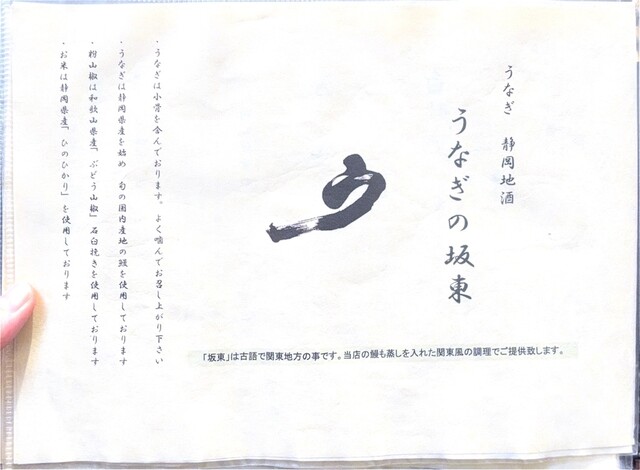 うなぎ 静岡地酒
うなぎの坂東
う
・うなぎは小骨を含んでおります。よく噛んでお召し上がり下さい
・うなぎは静岡県産を始め 旬の国内産地の鰻を使用しております
・粉山椒は和歌山県産「ぶどう山椒」石臼挽きを使用しております
・お米は静岡県産「ひのひかり」を使用しております
「坂東」は古語で関東地方の事です。当店の鰻も蒸しを入れた関東風の調理でご提供致します。